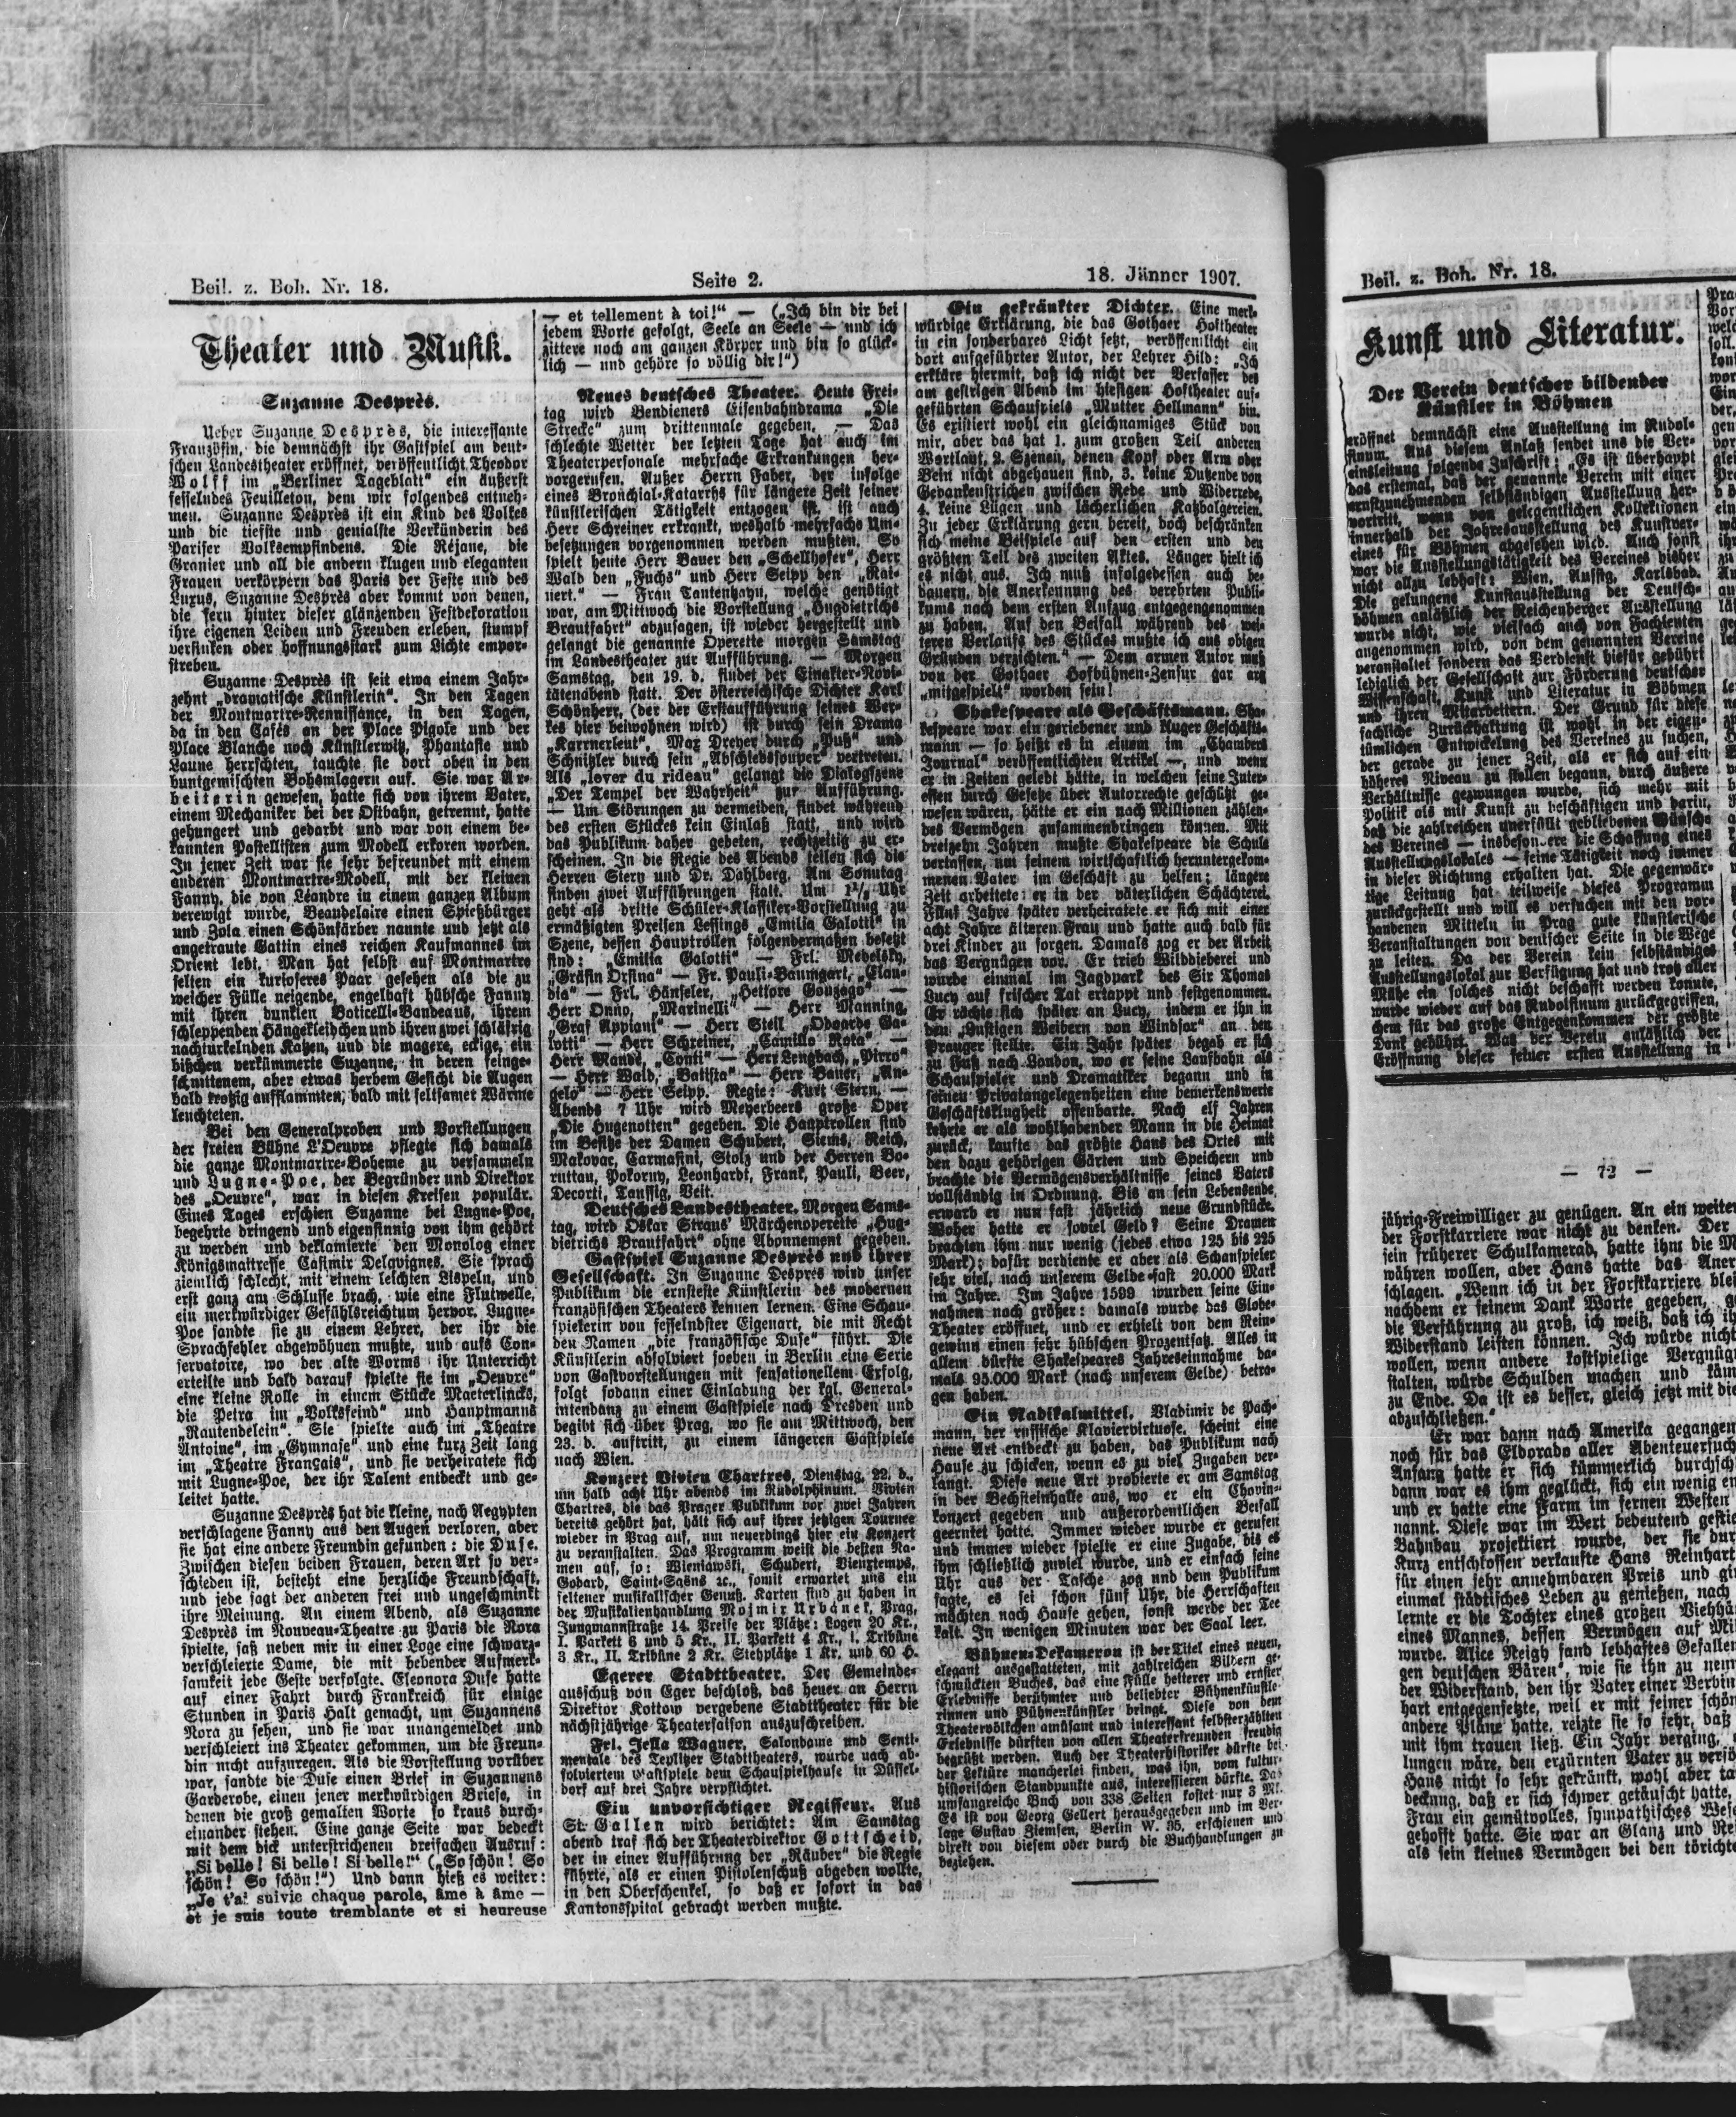 Beil. z. Boh. Nr. 18.
Seite 2.
18. Jänner 1907.
Theater und Musik.
Suzanne Desprès.
Ueber Suzanne Desprès, die interessante
Französin, die demnächst ihr Gastspiel am deut-
schen Landestheater eröffnet, veröffentlicht Theodor
Wolff im „Berliner Tageblatt“ ein äußerst
fesselndes Feuilleton, dem wir folgendes entneh-
men. Suzanne Desprès ist ein Kind des Volkes
und die tiefste und genialste Verkünderin des
Pariser Volksempfindens. Die Réjane, die
Granier und all die andern klugen und eleganten
Frauen verkörpern das Paris der Feste und des
Luxus, Suzanne Desprès aber kommt von denen,
die fern hinter dieser glänzenden Festdekoration
ihre eigenen Leiden und Freuden erleben, stumpf
versinken oder hoffnungsstark zum Lichte empor-
streben.
Suzanne Desprès ist seit etwa einem Jahr-
zehnt „dramatische Künstlerin“. In den Tagen
der Montmartre-Rennissance, in den Tagen,
da in den Cafés an der Place Pigole und der
Place Blanche noch Künstlerwitz, Phantasie und
Laune herrschten, tauchte sie dort oben in den
buntgemischten Bohèmlagern auf. Sie war Ar-
beiterin gewesen, hatte sich von ihrem Vater,
einem Mechaniker bei der Ostbahn, getrennt, hatte
gehungert und gedarbt und war von einem be-
kannten Pastellisten zum Modell erkoren worden.
In jener Zeit war sie sehr befreundet mit einem
anderen Montmartre-Modell, mit der kleinen
Fanny, die von Léandre in einem ganzen Album
verewigt wurde, Beaudelaire einen Spießbürger
und Zola einen Schönfärber nannte und jetzt als
angetraute Gattin eines reichen Kaufmannes im
Orient lebt. Man hat selbst auf Montmartre
selten ein kurioseres Paar gesehen als die zu
weicher Fülle neigende, engelhaft hübsche Fanny
mit ihren dunklen Boticelli-Bandeaus, ihrem
schleppenden Hängekleidchen und ihren zwei schläfrig
nachturkelnden Katzen, und die magere, eckige, ein
bißchen verkümmerte Suzanne, in deren feinge-
schnittenem, aber etwas herbem Gesicht die Augen
bald trotzig aufflammten, bald mit seltsamer Wärme
leuchteten.
Bei den Generalproben und Vorstellungen
der freien Bühne L'Oeuvre pflegte sich damals
die ganze Montmartre-Boheme zu versammeln
und Lugne-Poe, der Begründer und Direktor
des „Oeuvre“, war in diesen Kreisen populär.
Eines Tages erschien Suzanne bei Lugne-Poe,
begehrte dringend und eigensinnig von ihm gehört
zu werden und deklamierte den Monolog einer
Königsmaitresse Casimir Delavignes. Sie sprach
ziemlich schlecht, mit einem leichten Lispeln, und
erst ganz am Schlusse brach, wie eine Flutwelle,
ein merkwürdiger Gefühlsreichtum hervor. Lugne-
Poe sandte sie zu einem Lehrer, der ihr die
Sprachfehler abgewöhnen mußte, und aufs Con-
servatoire, wo der alte Worms ihr Unterricht
erteilte und bald darauf spielte sie im „Oeuvre“
eine kleine Rolle in einem Stücke Maeterlincks,
die Petra im „Volksfeind“ und Hauptmanns
„Rautendelein“. Sie spielte auch im „Theatre
Antoine“, im „Gymnase“ und eine kurz Zeit lang
im „Theatre Français“, und sie verheiratete sich
mit Lugne-Poe, der ihr Talent entdeckt und ge-
leitet hatte.
Suzanne Desprès hat die kleine, nach Aegypten
verschlagene Fanny aus den Augen verloren, aber
sie hat eine andere Freundin gefunden: die Duse.
Zwischen diesen beiden Frauen, deren Art so ver-
schieden ist, besteht eine herzliche Freundschaft,
und jede sagt der anderen frei und ungeschminkt
ihre Meinung. An einem Abend, als Suzanne
Desprès im Nouveau-Theatre zu Paris die Nora
spielte, saß neben mir in einer Loge eine schwarz-
verschleierte Dame, die mit bebender Aufmerk-
samkeit jede Geste verfolgte. Eleonora Duse hatte
auf einer Fahrt durch Frankreich für einige
Stunden in Paris Halt gemacht, um Suzannens
Nora zu sehen, und sie war unangemeldet und
verschleiert ins Theater gekommen, um die Freun-
din nicht aufzuregen. Als die Vorstellung vorüber
war, sandte die Duse einen Brief in Suzannens
Garderobe, einen jener merkwürdigen Briefe, in
denen die groß gemalten Worte so kraus durch-
einander stehen. Eine ganze Seite war bedeckt
mit dem dick unterstrichenen dreifachen Ausruf:
„Si belle! Si belle! Si belle!“ („So schön! So
schön! So schön!“) Und dann hieß es weiter:
„Je t'ai suivie chaque parole, âme à âme —
et je suis toute tremblante et si heureuse
— et tellement à toi!“ — („Ich bin dir bei
jedem Worte gefolgt, Seele an Seele — und ich
zittere noch am ganzen Körper und bin so glück-
lich — und gehöre so völlig dir!“)
Neues deutsches Theater. Heute Frei-
tag wird Bendieners Eisenbahndrama „Die
Strecke“ zum drittenmale gegeben. — Das
schlechte Wetter der letzten Tage hat auch im
Theaterpersonale mehrfache Erkrankungen her-
vorgerufen. Außer Herrn Faber, der infolge
eines Bronchial-Katarrhs für längere Zeit seiner
künstlerischen Tätigkeit entzogen ist, ist auch
Herr Schreiner erkrankt, weshalb mehrfache Um-
besetzungen vorgenommen werden mußten. So
spielt heute Herr Bauer den „Schellhofer“, Herr
Wald den „Fuchs“ und Herr Seipp den „Rai-
nert.“ — Frau Tautenhayn, welche genötigt
war, am Mittwoch die Vorstellung „Hugdietrichs
Brautfahrt“ abzusagen, ist wieder hergestellt und
gelangt die genannte Operette morgen Samstag
im Landestheater zur Aufführung. — Morgen
Samstag, den 19. d. findet der Einakter-Novi-
tätenabend statt. Der österreichische Dichter Karl
Schönherr, (der der Erstaufführung seines Wer-
kes hier beiwohnen wird) ist durch sein Drama
„Karrnerleut“, Max Dreyer durch „Puß“ und
Schnitzler durch sein „Abschiedssouper“ vertreten.
Als „lever du rideau“ gelangt die Dialogszene
„Der Tempel der Wahrheit“ zur Aufführung.
— Um Störungen zu vermeiden, findet während
des ersten Stückes kein Einlaß statt, und wird
das Publikum daher gebeten, rechtzeitig zu er-
scheinen. In die Regie des Abends teilen sich die
Herren Stern und Dr. Dahlberg. Am Sonntag
finden zwei Aufführungen statt. Um 1½ Uhr
geht als dritte Schüler-Klassiker-Vorstellung zu
ermäßigten Preisen Lessings „Emilia Galotti“ in
Szene, dessen Hauptrollen folgendermaßen besetzt
sind: „Emilia Galotti“ — Frl. Medelsky,
„Gräfin Orsina“ — Fr. Pauli-Baumgart, „Clau-
dia“ — Frl. Hänseler, „Hettore Gonzago“ —
Herr Onno, „Marinelli“ — Herr Manning,
„Graf Appiani“ — Herr Steil „Odoardo Ga-
lotti“ — Herr Schreiner, „Camillo Rota“ —
Herr Mandé, „Conti“ — Herr Lengbach, „Pirro“
— Herr Wald, „Batista“ — Herr Bauer, „An-
gelo“ — Herr Seipp. Regie: Kurt Stern. —
Abends 7 Uhr wird Meyerbeers große Oper
„Die Hugenotten“ gegeben. Die Hauptrollen sind
im Besitze der Damen Schubert, Siems, Reich,
Makovar, Carmasini, Stolz und der Herren Bo-
ruttau, Pokorny, Leonhardt, Frank, Pauli, Beer,
Decorti, Taussig, Veit.
Deutsches Landestheater. Morgen Sams-
tag, wird Oskar Straus' Märchenoperette „Hug-
dietrichs Brautfahrt“ ohne Abonnement gegeben.
Gastspiel Suzanne Desprès und ihrer
Gesellschaft. In Suzanne Despres wird unser
Publikum die ernsteste Künstlerin des modernen
französischen Theaters kennen lernen. Eine Schau-
spielerin von fesselndster Eigenart, die mit Recht
den Namen „die französische Duse“ führt. Die
Künstlerin absolviert soeben in Berlin eine Serie
von Gastvorstellungen mit sensationellem Erfolg,
folgt sodann einer Einladung der kgl. General-
intendanz zu einem Gastspiele nach Dresden und
begibt sich über Prag, wo sie am Mittwoch, den
23. d. auftritt, zu einem längeren Gastspiele
nach Wien.
Konzert Vivien Chartres, Dienstag, 22. d.,
um halb acht Uhr abends im Rudolphinum. Vivien
Chartres, die das Prager Publikum vor zwei Jahren
bereits gehört hat, hält sich auf ihrer jetzigen Tournee
wieder in Prag auf, um neuerdings hier ein Konzert
zu veranstalten. Das Programm weist die besten Na-
men auf, so: Wieniawski, Schubert, Vieuxtemps,
Godard, Saint-Saëns ꝛc., somit erwartet uns ein
seltener musikalischer Genuß. Karten sind zu haben in
der Musikalienhandlung Mojmir Urbánek, Prag,
Jungmannstraße 14. Preise der Plätze: Logen 20 Kr.,
I. Parkett 6 und 5 Kr., II. Parkett 4 Kr., I. Tribüne
3 Kr., II. Tribüne 2 Kr. Stehplätze 1 Kr. und 60 H.
Egerer Stadttheater. Der Gemeinde-
ausschuß von Eger beschloß, das heuer an Herrn
Direktor Kottow vergebene Stadttheater für die
nächstjährige Theatersaison auszuschreiben.
Frl. Jella Wagner, Salondame und Senti-
mentale des Teplitzer Stadttheaters, wurde nach ab-
solviertem Gastspiele dem Schauspielhause in Düssel-
dorf auf drei Jahre verpflichtet.
Ein unvorsichtiger Regisseur. Aus
St. Gallen wird berichtet: Am Samstag
abend traf sich der Theaterdirektor Gottscheid,
der in einer Aufführung der „Räuber“ die Regie
führte, als er einen Pistolenschuß abgeben wollte,
in den Oberschenkel, so daß er sofort in das
Kantonsspital gebracht werden mußte.
Ein gekränkter Dichter. Eine merk-
würdige Erklärung, die das Gothaer Hoftheater
in ein sonderbares Licht setzt, veröffentlicht ein
dort aufgeführter Autor, der Lehrer Hild: „Ich
erkläre hiermit, daß ich nicht der Verfasser des
am gestrigen Abend im hiesigen Hoftheater auf-
geführten Schauspiels „Mutter Hellmann“ bin.
Es existiert wohl ein gleichnamiges Stück von
mir, aber das hat 1. zum großen Teil anderen
Wortlaut, 2. Szenen, denen Kopf oder Arm oder
Bein nicht abgehauen sind, 3. keine Dutzende von
Gedankenstrichen zwischen Rede und Widerrede,
4. keine Lügen und lächerlichen Katzbalgereien.
Zu jeder Erklärung gern bereit, doch beschränken
sich meine Beispiele auf den ersten und den
größten Teil des zweiten Aktes. Länger hielt ich
es nicht aus. Ich muß infolgedessen auch be-
dauern, die Anerkennung des verehrten Publi-
kums nach dem ersten Aufzug entgegengenommen
zu haben. Auf den Beifall während des wei-
teren Verlaufs des Stückes mußte ich aus obigen
Gründen verzichten.“ — Dem armen Autor muß
von der Gothaer Hofbühnen-Zensur gar arg
„mitgespielt“ worden sein!
Shakespeare als Geschäftsmann. Sha-
kespeare war ein geriebener und kluger Geschäfts-
mann — so heißt es in einem im „Chambers
Journal“ veröffentlichten Artikel —, und wenn
er in Zeiten gelebt hätte, in welchen seine Inter-
essen durch Gesetze über Autorrechte geschützt ge-
wesen wären, hätte er ein nach Millionen zählen-
des Vermögen zusammenbringen können. Mit
dreizehn Jahren mußte Shakespeare die Schule
verlassen, um seinem wirtschaftlich heruntergekom-
menen Vater im Geschäft zu helfen; längere
Zeit arbeitete er in der väterlichen Schächterei.
Fünf Jahre später verheiratete er sich mit einer
acht Jahre älteren Frau und hatte auch bald für
drei Kinder zu sorgen. Damals zog er der Arbeit
das Vergnügen vor. Er trieb Wilddieberei und
wurde einmal im Jagdpark des Sir Thomas
Lucy auf frischer Tat ertappt und festgenommen.
Er rächte sich später an Lucy, indem er ihn in
den „Lustigen Weibern von Windsor“ an den
Pranger stellte. Ein Jahr später begab er sich
zu Fuß nach London, wo er seine Laufbahn als
Schauspieler und Dramatiker begann und in
seinen Privatangelegenheiten eine bemerkenswerte
Geschäftsklugheit offenbarte. Nach elf Jahren
kehrte er als wohlhabender Mann in die Heimat
zurück, kaufte das größte Haus des Ortes mit
den dazu gehörigen Gärten und Speichern und
brachte die Vermögensverhältnisse seines Vaters
vollständig in Ordnung. Bis an sein Lebensende
erwarb er nun fast jährlich neue Grundstücke.
Woher hatte er soviel Geld? Seine Dramen
brachten ihm nur wenig (jedes etwa 125 bis 225
Mark); dafür verdiente er aber als Schauspieler
sehr viel, nach unserem Gelde fast 20.000 Mark
im Jahre. Im Jahre 1599 wurden seine Ein-
nahmen noch größer: damals wurde das Globe-
Theater eröffnet, und er erhielt von dem Rein-
gewinn einen sehr hübschen Prozentsatz. Alles in
allem dürfte Shakespeares Jahreseinnahme da-
mals 95.000 Mark (nach unserem Gelde) betra-
gen haben.
Ein Radikalmittel. Vladimir de Pach-
mann, der russische Klaviervirtuose, scheint eine
neue Art entdeckt zu haben, das Publikum nach
Hause zu schicken, wenn es zu viel Zugaben ver-
langt. Diese neue Art probierte er am Samstag
in der Bechsteinhalle aus, wo er ein Chopin-
konzert gegeben und außerordentlichen Beifall
geerntet hatte. Immer wieder wurde er gerufen
und immer wieder spielte er eine Zugabe, bis es
ihm schließlich zuviel wurde, und er einfach seine
Uhr aus der Tasche zog und dem Publikum
sagte, es sei schon fünf Uhr, die Herrschaften
möchten nach Hause gehen, sonst werde der Tee
kalt. In wenigen Minuten war der Saal leer.
Bühnen-Dekameron ist der Titel eines neuen,
elegant ausgestatteten, mit zahlreichen Bildern ge-
schmückten Buches, das eine Fülle heiterer und ernster
Erlebnisse berühmter und beliebter Bühnenkünstle-
rinnen und Bühnenkünstler bringt. Diese von dem
Theatervölkchen amüsant und interessant selbsterzählten
Erlebnisse dürften von allen Theaterfreunden freudig
begrüßt werden. Auch der Theaterhistoriker dürfte bei
der Lektüre mancherlei finden, was ihn, vom kultur-
historischen Standpunkte aus, interessieren dürfte. Das
umfangreiche Buch von 338 Seiten kostet nur 3 Mk.
Es ist von Georg Gellert herausgegeben und im Ver-
lage Gustav Ziemsen, Berlin W. 35, erschienen und
direkt von diesem oder durch die Buchhandlungen zu
beziehen.
Beil. z. Boh. Nr. 18.
Kunst und Literatur.
Der Verein deutscher bildender
Künstler in Böhmen
eröffnet demnächst eine Ausstellung im Rudol-
finum. Aus diesem Anlaß sendet uns die Ver-
einsleitung folgende Zuschrift: „Es ist überhaupt
das erstemal, daß der genannte Verein mit einer
ernstzunehmenden selbständigen Ausstellung her-
vortritt, wenn von gelegentlichen Kollektionen
innerhalb der Jahresausstellung des Kunstver-
eines für Böhmen abgesehen wird. Auch sonst
war die Ausstellungstätigkeit des Vereines bisher
nicht allzu lebhaft: Wien, Aussig, Karlsbad.
Die gelungene Kunstausstellung der Deutsch-
böhmen anläßlich der Reichenberger Ausstellung
wurde nicht, wie vielfach auch von Fachleuten
angenommen wird, von dem genannten Vereine
veranstaltet sondern das Verdienst hiefür gebührt
lediglich der Gesellschaft zur Förderung deutscher
Wissenschaft, Kunst und Literatur in Böhmen
und ihren Mitarbeitern. Der Grund für diese
fachliche Zurückhaltung ist wohl in der eigen-
tümlichen Entwickelung des Vereines zu suchen,
der gerade zu jener Zeit, als er sich auf ein
höheres Niveau zu stellen begann, durch äußere
Verhältnisse gezwungen wurde, sich mehr mit
Politik als mit Kunst zu beschäftigen und darin,
daß die zahlreichen unerfüllt gebliebenen Wünsche
des Vereines — insbesondere die Schaffung eines
Ausstellungslokales — seine Tätigkeit noch immer
in dieser Richtung erhalten hat. Die gegenwär-
tige Leitung hat teilweise dieses Programm
zurückgestellt und will es versuchen mit den vor-
handenen Mitteln in Prag gute künstlerische
Veranstaltungen von deutscher Seite in die Wege
zu leiten. Da der Verein kein selbständiges
Ausstellungslokal zur Verfügung hat und trotz aller
Mühe ein solches nicht beschafft werden konnte,
wurde wieder auf das Rudolfinum zurückgegriffen,
dem für das große Entgegenkommen der größte
Dank gebührt. Was der Verein anläßlich der
Eröffnung dieser seiner ersten Ausstellung in
— 72 —
jährig-Freiwilliger zu genügen. An ein weiter
der Forstkarriere war nicht zu denken. Der
sein früherer Schulkamerad, hatte ihm die M
währen wollen, aber Hans hatte das Aner
schlagen. „Wenn ich in der Forstkarriere blei
nachdem er seinem Dank Worte gegeben,
die Verführung zu groß, ich weiß, daß ich ih
Widerstand leisten können. Ich würde nicht
wollen, wenn andere kostspielige Vergnüg
stalten, würde Schulden machen und käm
zu Ende. Da ist es besser, gleich jetzt mit die
abzuschließen.“
Er war dann nach Amerika gegangen
noch für das Eldorado aller Abenteuersuch
Anfang hatte er sich kümmerlich durchsch
dann war es ihm geglückt, sich ein wenig en
und er hatte eine Farm im fernen Westen
nannt. Diese war im Wert bedeutend gestie
Bahnbau projektiert wurde, der sie dur
Kurz entschlossen verkaufte Hans Reinhart
für einen sehr annehmbaren Preis und gi
einmal städtisches Leben zu genießen, nach
lernte er die Tochter eines großen Viehhä
eines Mannes, dessen Vermögen auf Mil
wurde. Alice Reigh fand lebhaftes Gefallen
gen deutschen Bären“, wie sie ihn zu nenn
der Widerstand, den ihr Vater einer Verbin
hart entgegensetzte, weil er mit seiner schön
andere Pläne hatte, reizte sie so sehr, daß
mit ihm trauen ließ. Ein Jahr verging,
lungen wäre, den erzürnten Vater zu versö
Hans nicht so sehr gekränkt, wohl aber ta
deckung, daß er sich schwer getäuscht hatte,
Frau ein gemütvolles, sympathisches Wes
gehofft hatte. Sie war an Glanz und Re
als sein kleines Vermögen bei den törichte